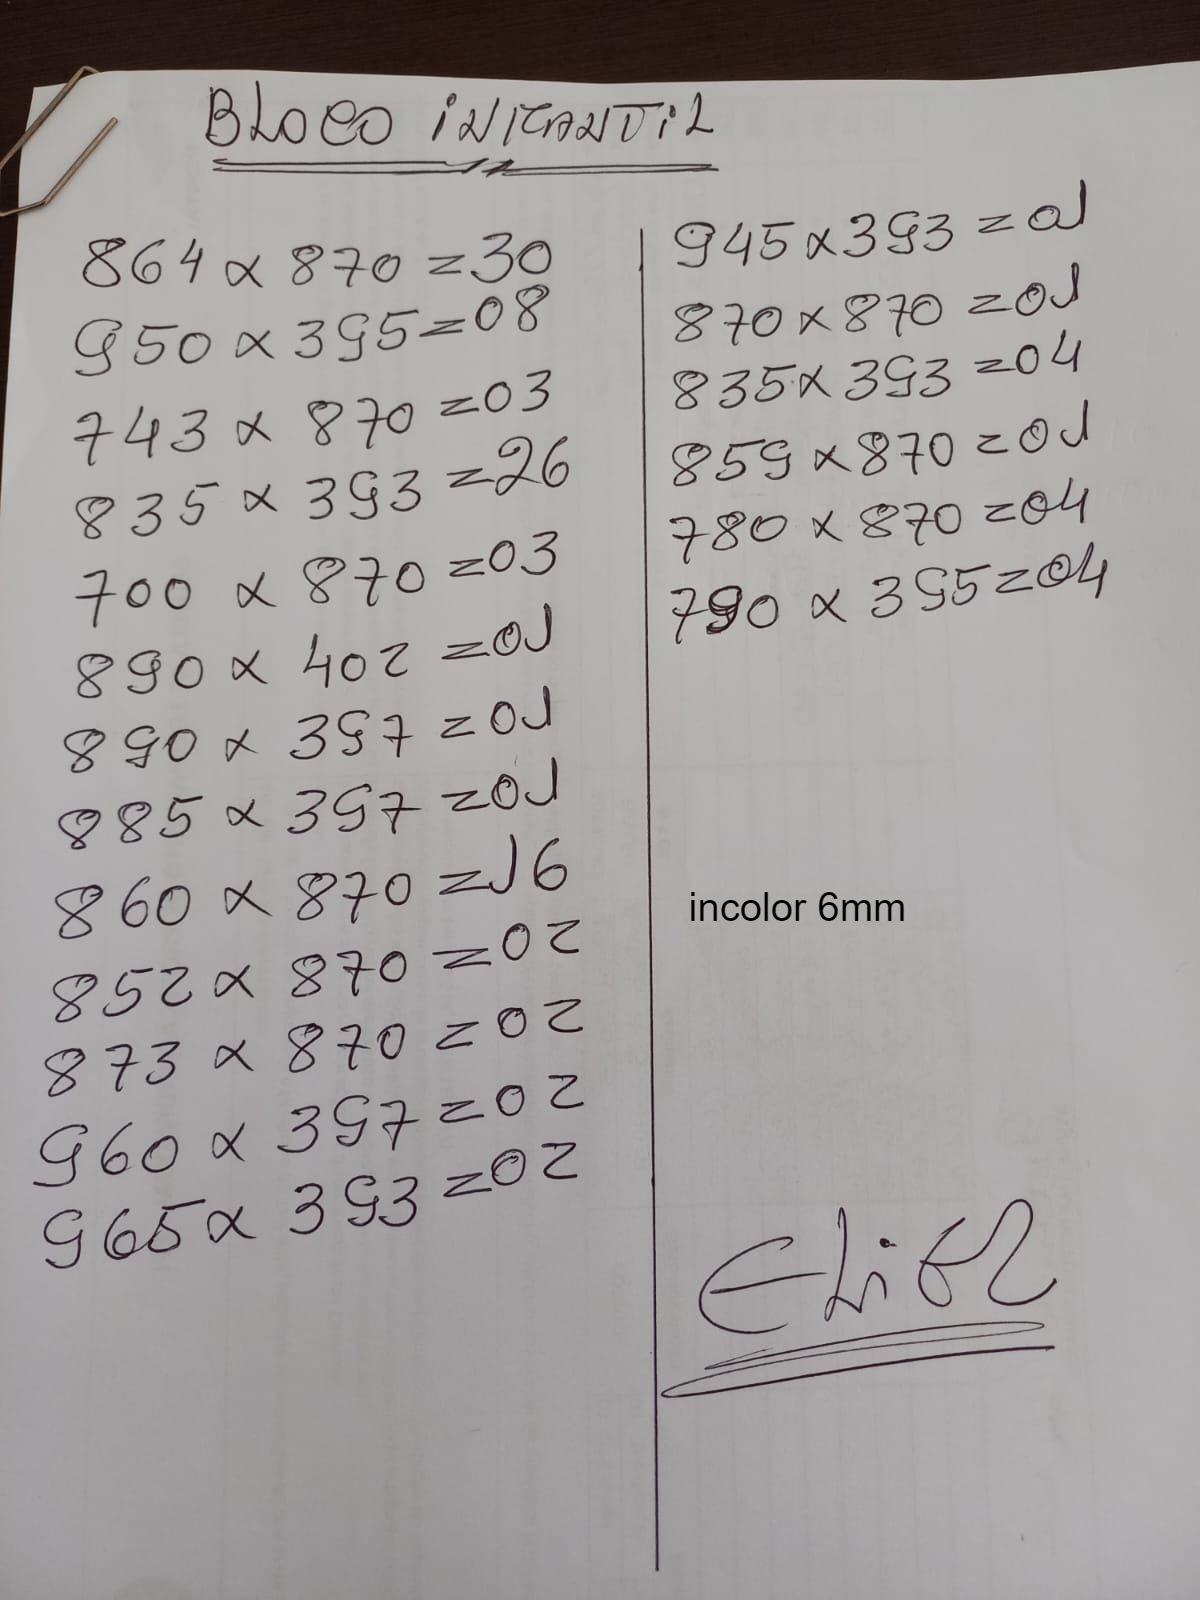 BLOCO INFANTIL
864 x 870 = 30
950 x 395 = 08
743 x 870 = 03
835 x 393 = 26
700 x 870 = 03
890 x 402 = 01
890 x 397 = 01
885 x 397 = 01
860 x 870 = 16
852 x 870 = 02
873 x 870 = 02
960 x 397 = 02
965 x 393 = 02
945 x 393 = 01
870 x 870 = 01
835 x 393 = 04
859 x 870 = 01
780 x 870 = 04
790 x 395 = 04
incolor 6mm